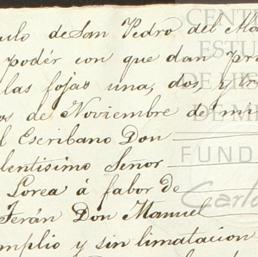 culo de San Pedro del Ma
podér con que dan pri
las fojas una, dos, y tr
os de Noviembre de mi
l Escribano Don
lentisimo Señor
Lorea á fabor de
Ferán Don Manuel
mplio y sin limatacion
CENT
ESTU
DE HIS
DE M
FUND
Carlo